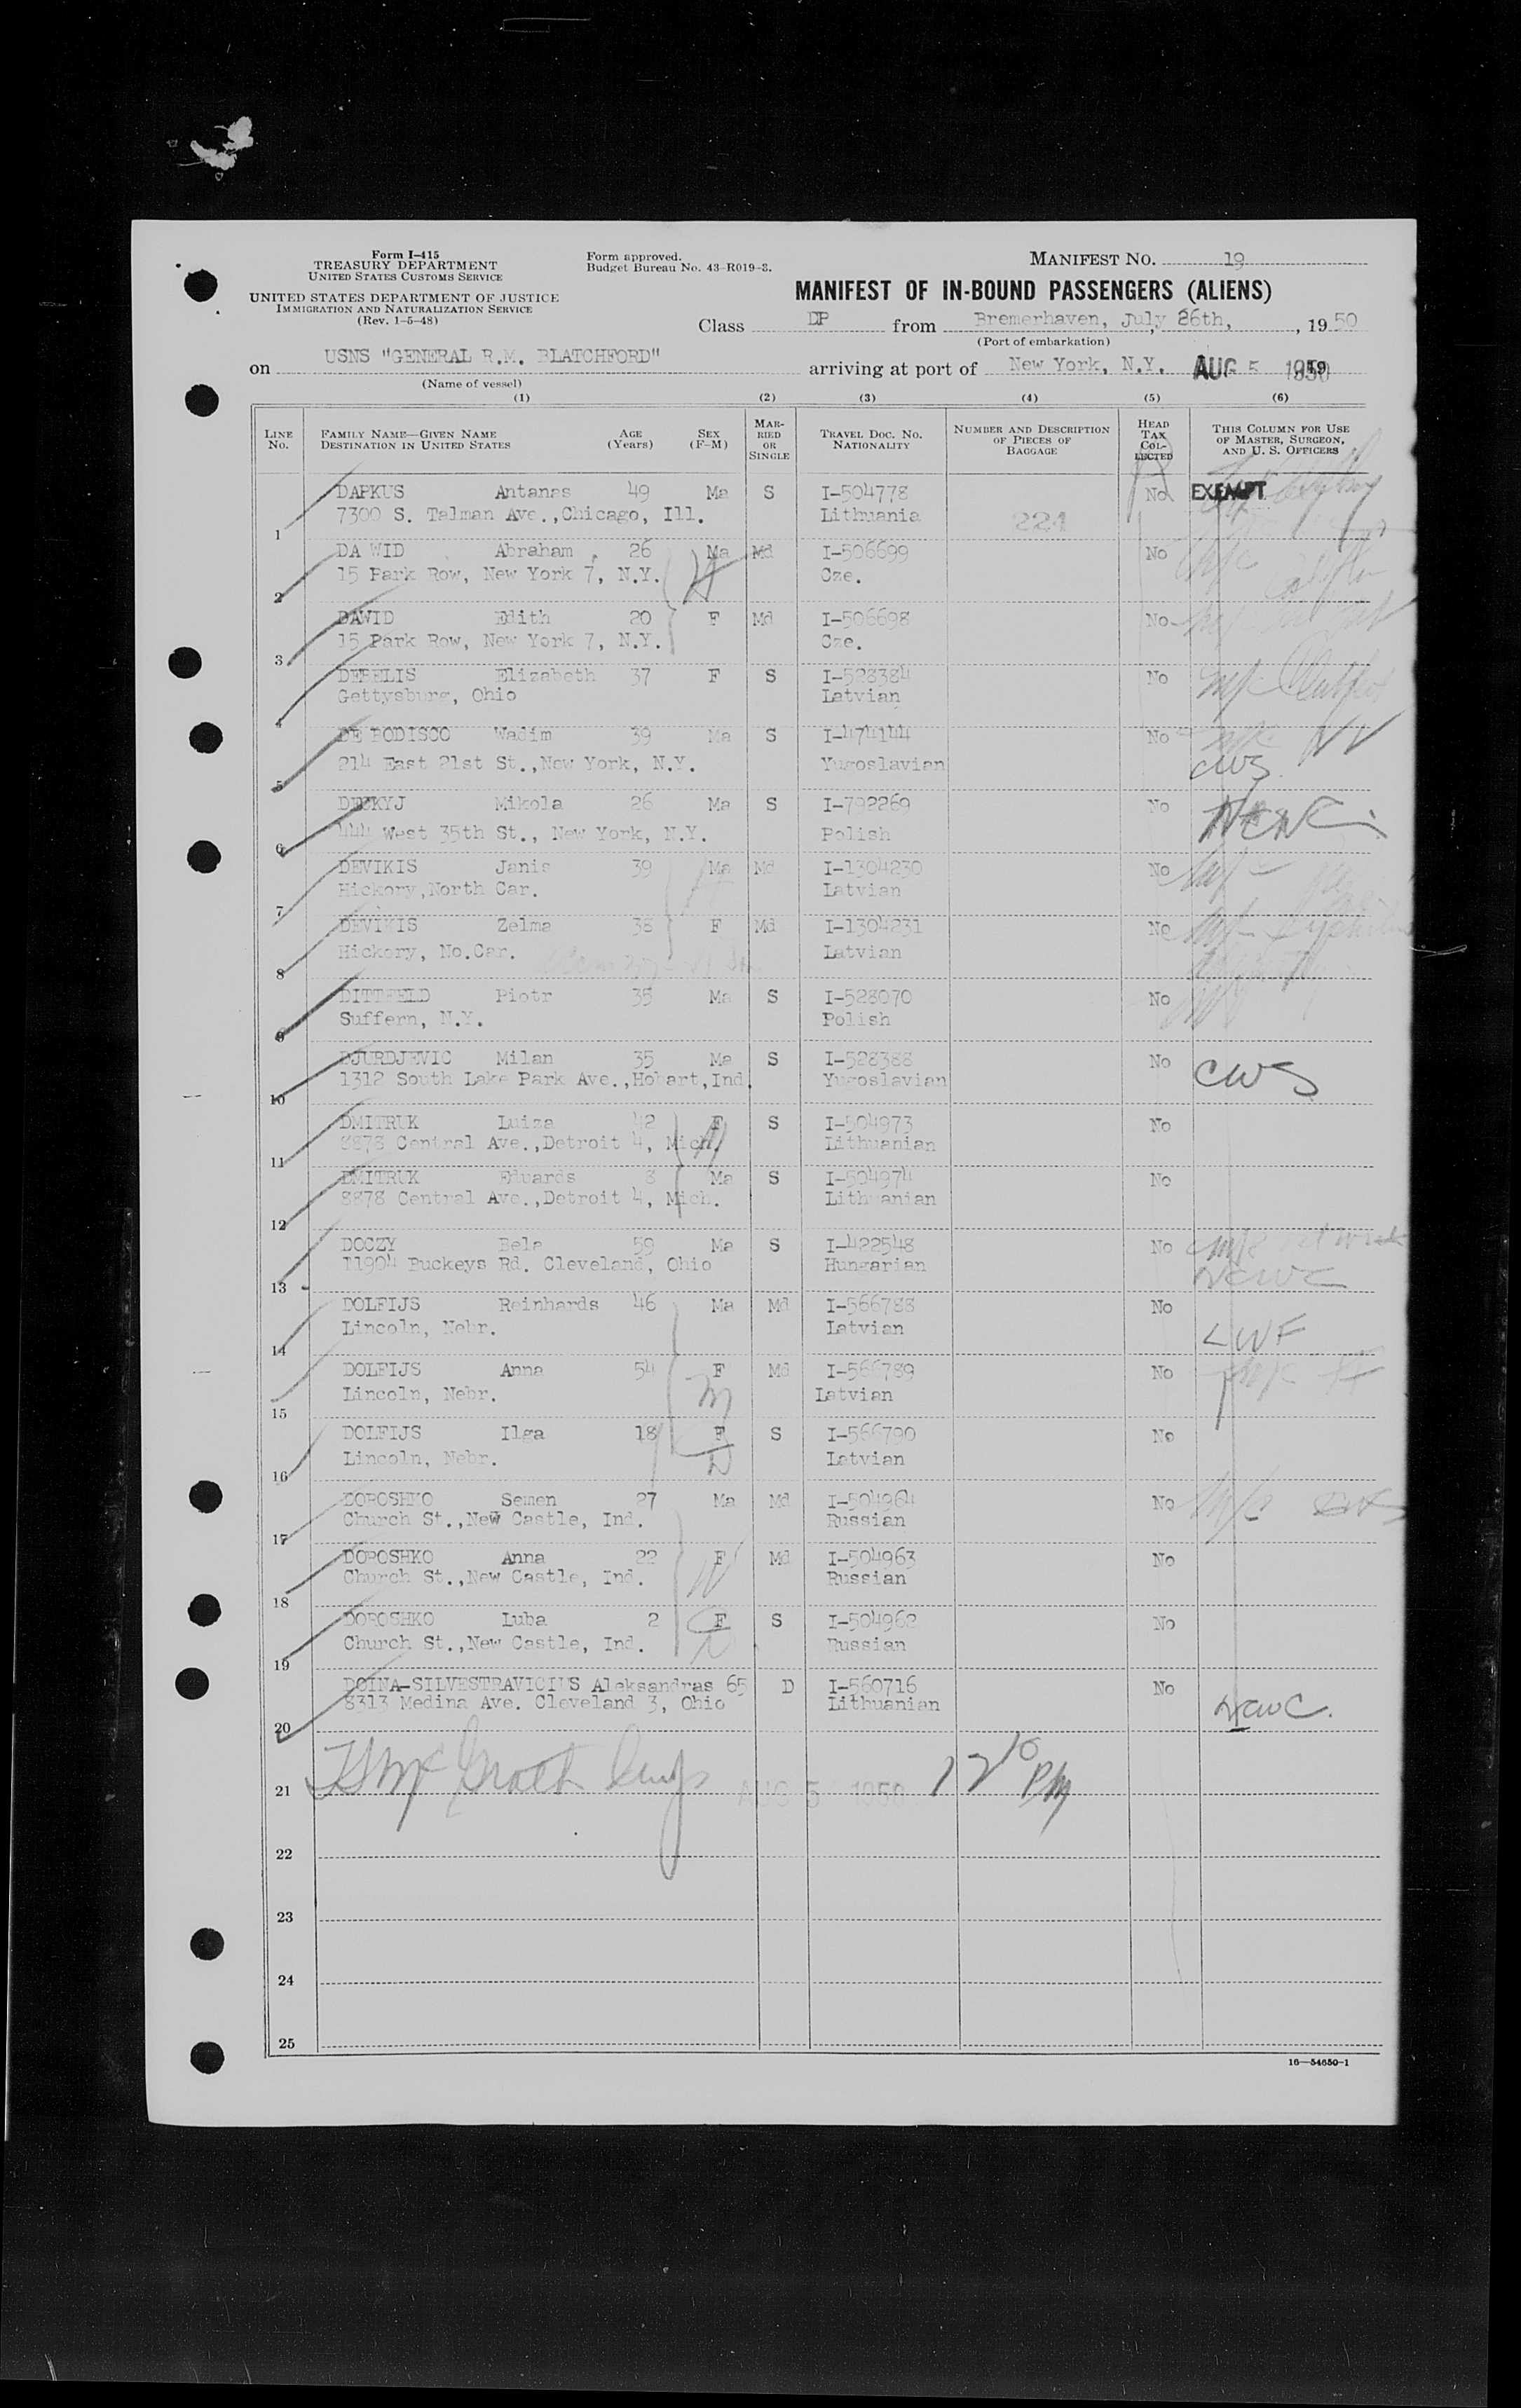 Form I-415
TREASURY DEPARTMENT
UNITED STATES CUSTOMS SERVICE
UNITED STATES DEPARTMENT OF JUSTICE
IMMIGRATION AND NATURALIZATION SERVICE
(Rev. 1-5-48)
Form approved.
Budget Bureau No. 43-R019-3.
MANIFEST NO. 19
MANIFEST OF IN-BOUND PASSENGERS (ALIENS)
Class DP from Bremerhaven, July 26th, , 1950
(Port of embarkation)
on USNS "GENERAL R.M. BLATCHFORD" arriving at port of New York, N.Y. AUG 5 1950
(Name of vessel)
(1) (2) (3) (4) (5) (6)
LINE No. FAMILY NAME—GIVEN NAME DESTINATION IN UNITED STATES AGE (Years) SEX (F-M) MARRIED OR SINGLE TRAVEL DOC. NO. NATIONALITY NUMBER AND DESCRIPTION OF PIECES OF BAGGAGE HEAD TAX COLLECTED THIS COLUMN FOR USE OF MASTER, SURGEON, AND U. S. OFFICERS
DAPKUS Antanas 49 Ma S I-504778 No EXEMPT
1 7300 S. Talman Ave.,Chicago, Ill. Lithuania 221
DAWID Abraham 26 Ma Md I-506699 No
2 15 Park Row, New York 7, N.Y. Cze.
DAWID Edith 20 F Md I-506698 No
3 15 Park Row, New York 7, N.Y. Cze.
DEBELIS Elizabeth 37 F S I-528384 No
4 Gettysburg, Ohio Latvian
DE BODISCO Wadim 39 Ma S I-474144 No
5 214 East 21st St.,New York, N.Y. Yugoslavian CWS
Mikola 26 Ma S I-792269 No
6 444 West 35th St., New York, N.Y. Polish NCWC
DEVIKIS Janis 39 Ma Md I-1304230 No
7 Hickory,North Car. Latvian
DEVIKIS Zelma 38 F Md I-1304231 No
8 Hickory, No.Car. Latvian
DITTFELD Piotr 35 Ma S I-528070 No
9 Suffern, N.Y. Polish
DJURDJEVIC Milan 35 Ma S I-528388 No
10 1312 South Lake Park Ave.,Hobart,Ind. Yugoslavian CWS
DMITRUK Luiza 42 F S I-504973 No
11 8878 Central Ave.,Detroit 4, Mich. Lithuanian
DMITRUK Eduards 8 Ma S I-504974 No
12 8878 Central Ave.,Detroit 4, Mich. Lithuanian
DOCZY Bela 59 Ma S I-422548 No
13 11904 Buckeys Rd. Cleveland, Ohio Hungarian NCWC
DOLFIJS Reinhards 46 Ma Md I-566788 No
14 Lincoln, Nebr. Latvian LWF
DOLFIJS Anna 54 F Md I-566789 No
15 Lincoln, Nebr. Latvian
DOLFIJS Ilga 18 F S I-566790 No
16 Lincoln, Nebr. Latvian
DOROSHKO Semen 27 Ma Md I-504964 No
17 Church St.,New Castle, Ind. Russian
DOROSHKO Anna 22 F Md I-504963 No
18 Church St.,New Castle, Ind. Russian
DOROSHKO Luba 2 F S I-504962 No
19 Church St.,New Castle, Ind. Russian
DOINA-SILVESTRAVICIUS Aleksandras 65 D I-560716 No
20 8313 Medina Ave. Cleveland 3, Ohio Lithuanian NCWC.
21 AUG 5 1950 12 10 PM
22
23
24
25
16—54650-1